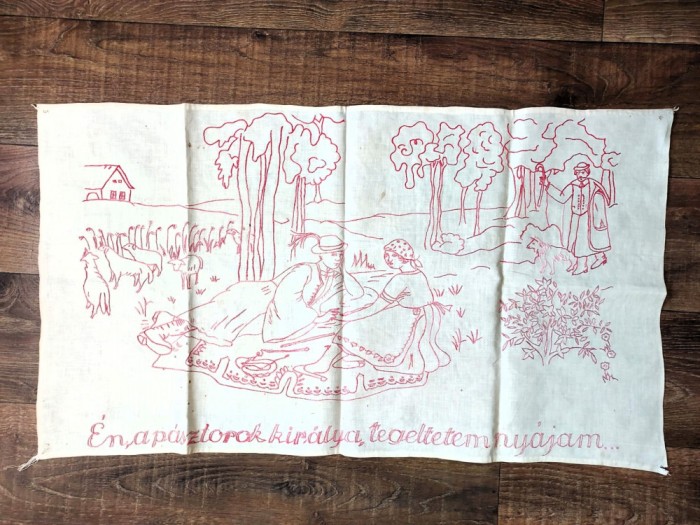 Én, a pásztorok királya, legeltetem nyájam...